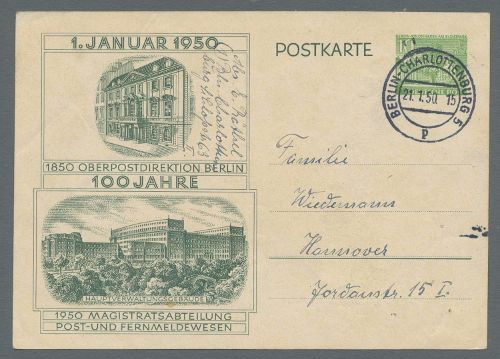 1. JANUAR 1950
1850 OBERPOSTDIREKTION BERLIN
100 JAHRE
HAUPTVERWALTUNGSGEBÄUDE
1950 MAGISTRATSABTEILUNG
POST- UND FERNMELDEWESEN
POSTKARTE
BERLIN-CHARLOTTENBURG 5
21.1.50. 15
p
Familie
Wiedemann
Hannover
Jordanstr. 15 I.